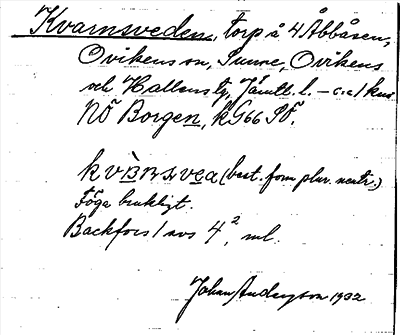 Kvarnsveden, torp å 4 Åbbåsen,
Ovikens sn, Sunne, Ovikens
och Hallens tg, Jämtl. l. – c:a 1 km
NÖ Borgen, kG66 SÖ.
(best. form plur. neutr.)
Föga brukligt.
Backfors 1 avs 4², ml.
Johan Anderzson 1932